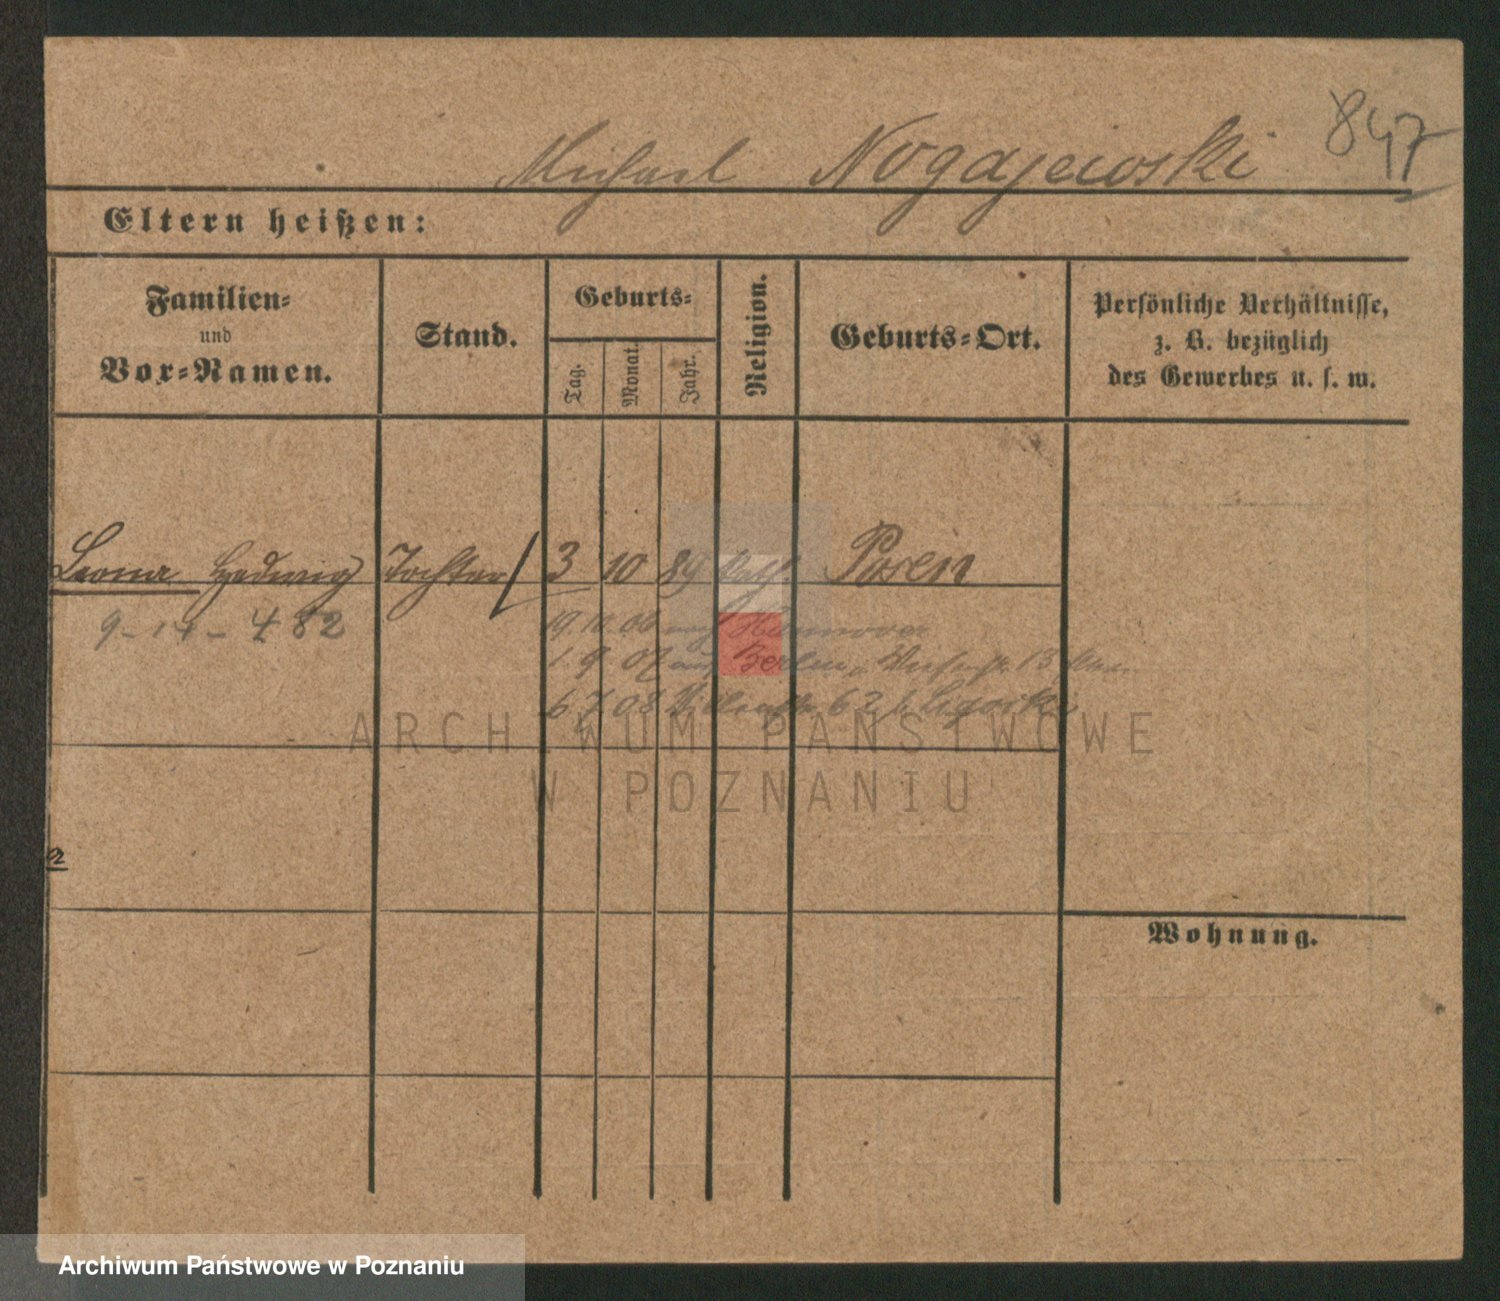 847
Michael Nogajewski
Eltern heißen:
Familien-
und
Vor-Namen.
Stand.
Geburts-
Tag.
Monat.
Jahr.
Religion.
Geburts-Ort.
Persönliche Verhältnisse,
z. B. bezüglich
des Gewerbes u. s. w.
Leona Hedwig Tochter 3 10 89 kath. Posen
9-14-482
19.10.06 auf Hannover
1 9 07 aus Berlin, 13
6 7 08 62
ARCHIWUM PAŃSTWOWE
W POZNANIU
Wohnung.
Archiwum Państwowe w Poznaniu